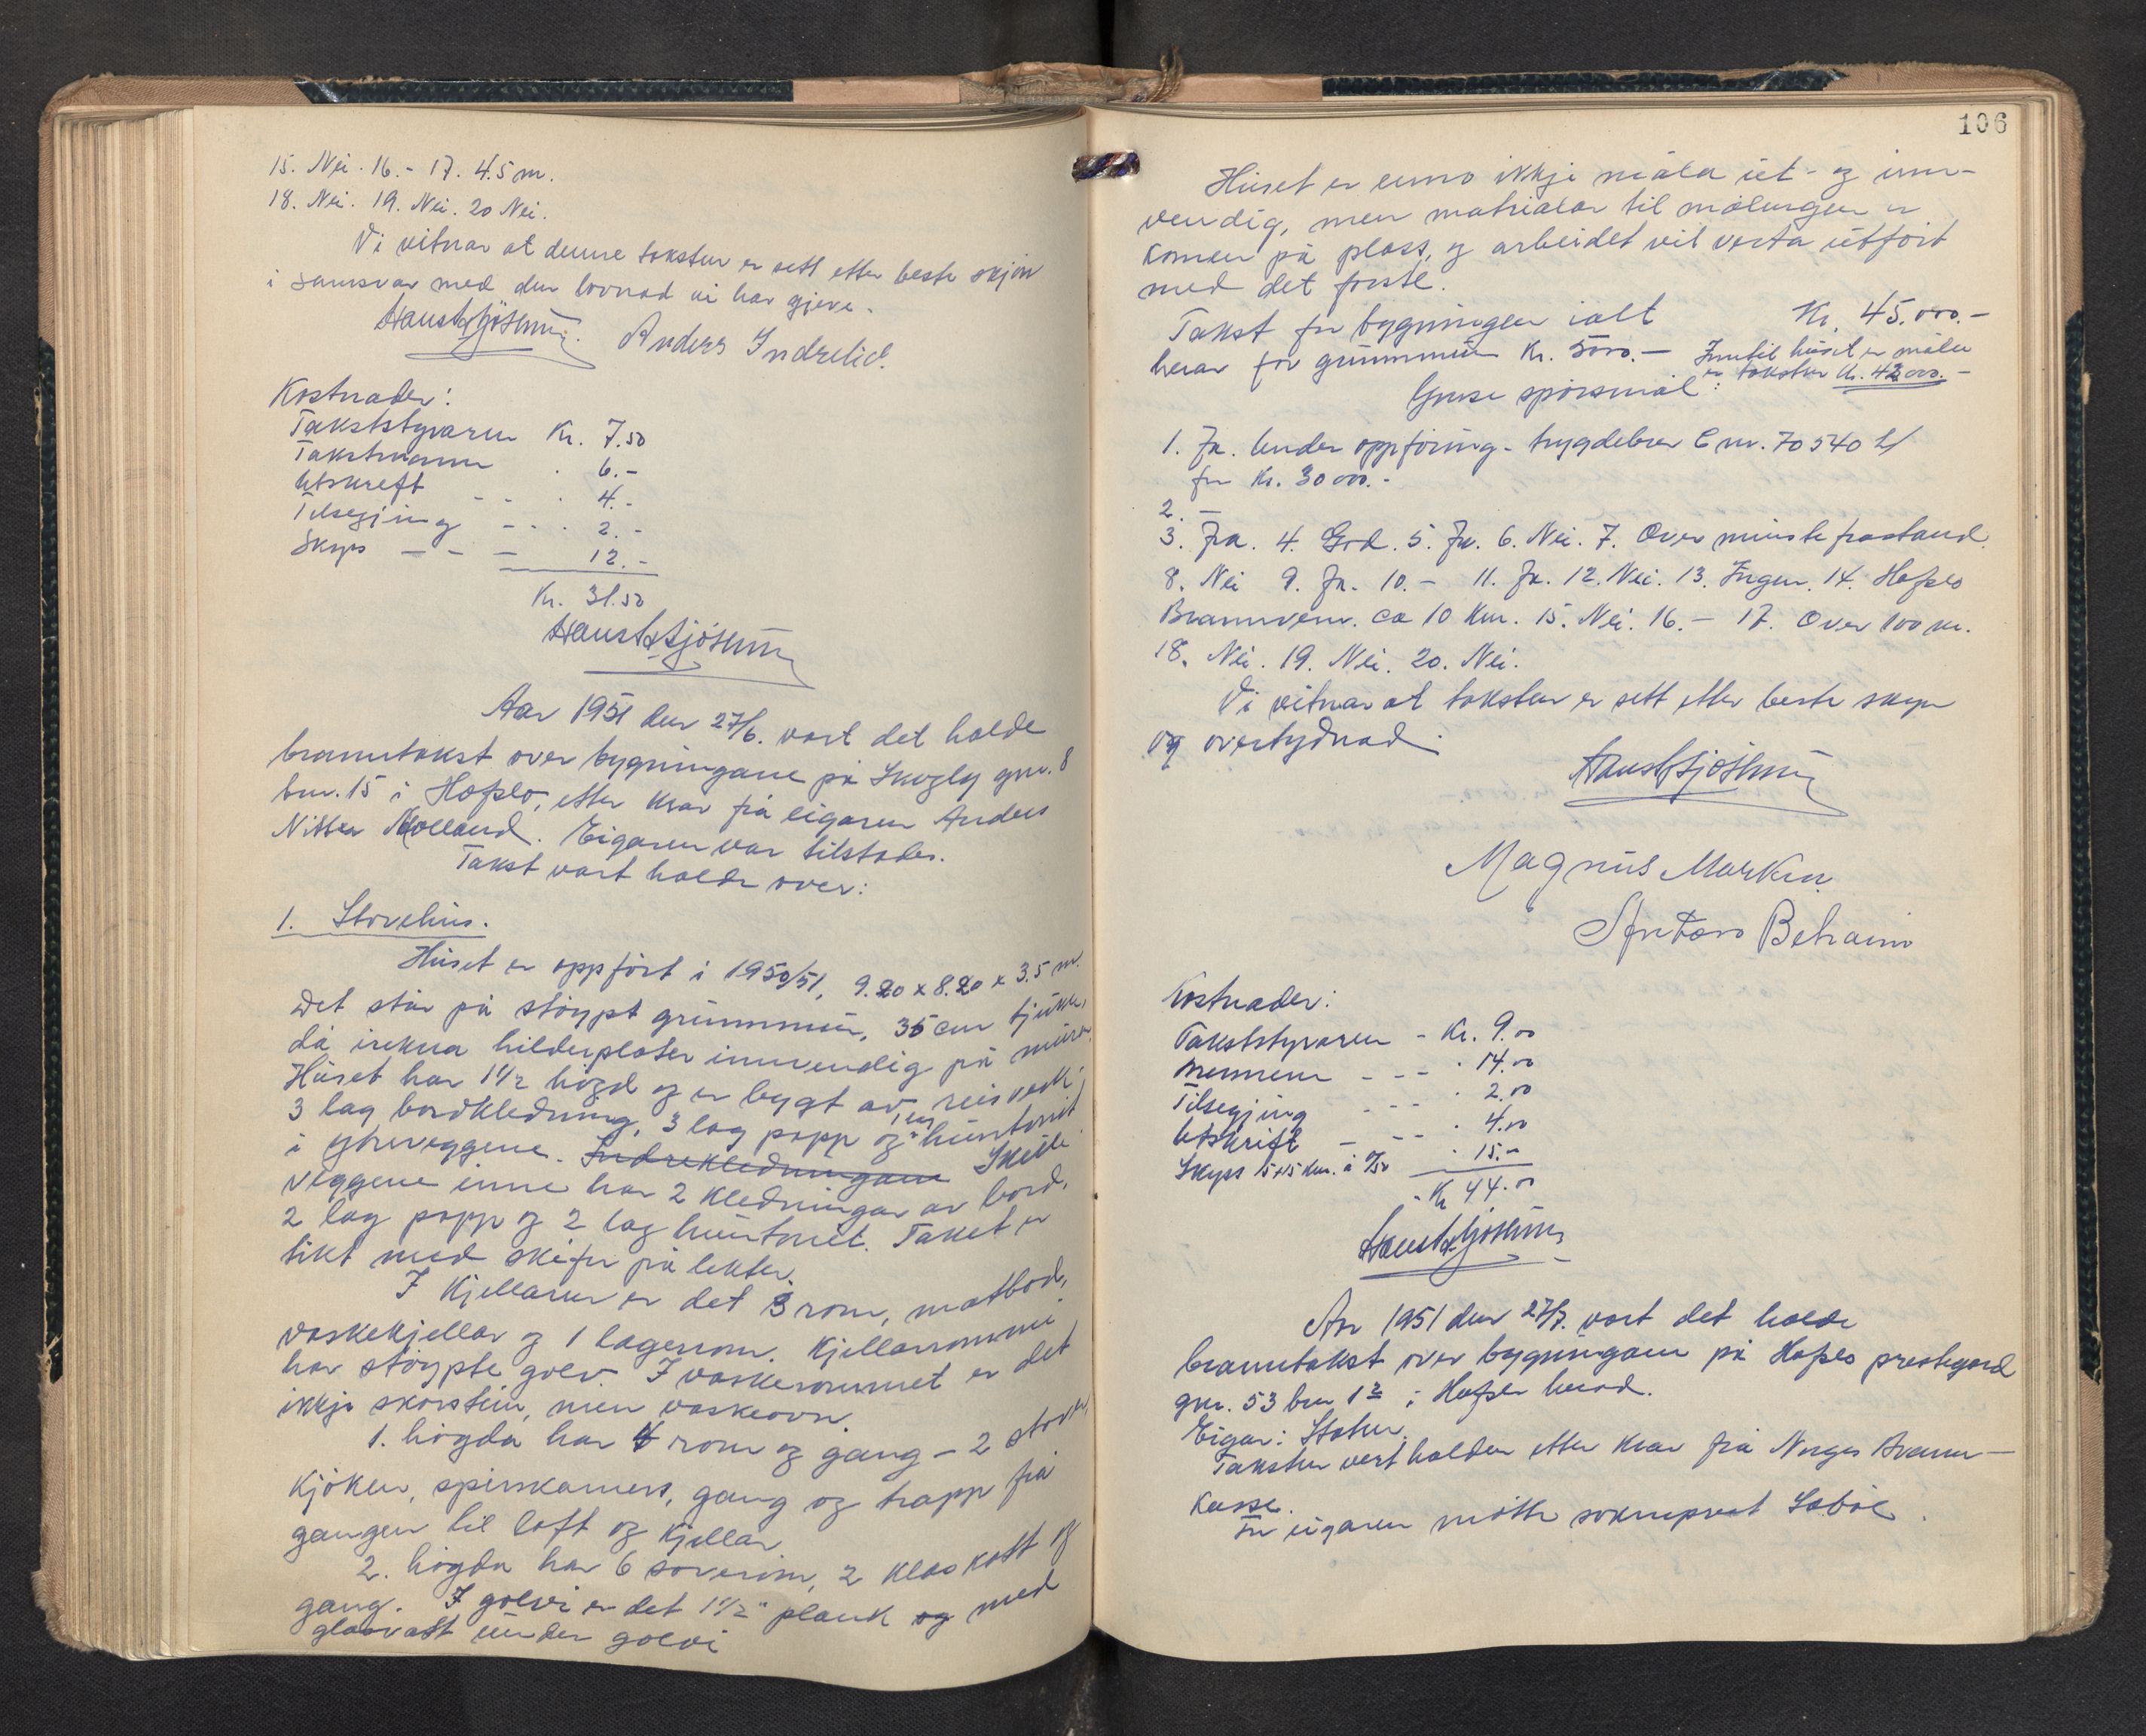 15. Nei. 16. - 17. 4.5 m.
18. Nei. 19. Nei. 20 Nei.
Vi vitnar at denne taksten er sett etter beste skjön
i samsvar med den lovnad vi har gjeve.
Anders Indrelid.
Kostnader:
Takststyraren Kr. 7.50
Takstmann . 6.-
Utskrift - - . 4.-
Tilsegjing - - . 2.-
Skyss - - - 12.-
Kr. 31.50
Aar 1951 den 27/6. vart det halde
branntakst over bygningane på Skogly gnr. 8
bnr. 15 i Hafslo, etter krav frå eigaren Anders
Nitter Molland. Eigaren var tilstades.
Takst vart halde over:
1. Stovehus.
Huset er oppfört i 1950/51, 9.20 x 8.20 x 3.5 m.
Det står på stöypt grunnmur, 35 cm tjukk,
då irekna hilderplater innvendig på muren.
Huset har 1 1/2 högd og er bygt av reisverk,
3 lag bordkledning, 3 lag papp og 1 lag huntonit
i ytreveggene. Indrekledningane Skille
veggene inne har 2 kledningar av bord,
2 lag papp og 2 lag huntonit. Taket er
tikt med skifer på lekter.
I Kjellaren er det 3 rom, matbod,
vaskekjellar og 1 lagerrom. Kjellarrommi
har stöypte golv. I vaskerommet er det
ikkje skorstein, men vaskeovn.
1. högda har 4 rom og gang - 2 stover,
Kjöken, spiskamers, gang og trapp frå
gangen til loft og kjellar
2. högda har 6 soverom, 2 kleskott og
gang. I golvi er det 1 1/2" plank og med
glasvatt under golvi
106
Huset er enno ikkje måla ut- og inn-
vendig, men matrialar til målingen er
komen på plass, og arbeidet vil verta utfört
med det förste.
Takst for bygningen ialt Kr. 45.000.-
herav for grunnmuren Kr. 5000.- Inntil huset er måla
er taksten Kr. 42000.-
Ymse spörsmål:
1. Ja. Under oppföring - trygdebrev C nr. 70540
for Kr. 30000.-
2. -
3. Ja. 4. God. 5. Ja. 6. Nei. 7. Over minste frastand.
8. Nei 9. Ja. 10. - 11. Ja. 12. Nei. 13. Ingen. 14. Hafslo
Brannvern. ca 10 km. 15. Nei. 16. - 17. Over 100 m.
18. Nei. 19. Nei. 20. Nei.
Vi vitnar at taksten er sett etter beste skjön
og overtydnad.
Magnus Markin
Kostnader:
Takststyraren - Kr. 9.00
Mennene - - - . 14.00
Tilsegjing - - - . 2.00
Utskrift - - - . 4.00
Skyss 15+15 km. à 0/50 . 15.-
Kr 44.00
Aar 1951 den 27/7. vart det halde
branntakst over bygningane på Hafslo prestegard
gnr. 53 bnr 1 i Hafslo herad.
Eigar: Staten.
Taksten vert halden etter krav frå Norges Brann-
kasse.
For eigaren mötte sokneprest